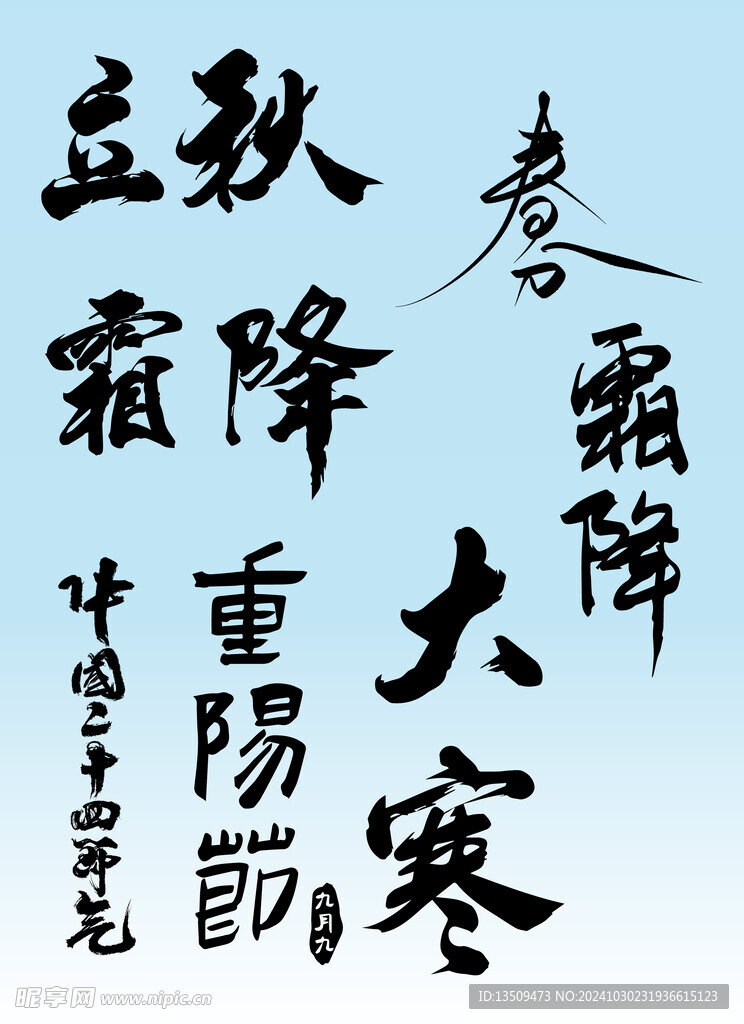 立秋
春分
霜降
霜降
中国二十四节气
重陽節
九月九
大寒
昵享网 www.nipic.cn
ID:13509473 NO:20241030231936615123